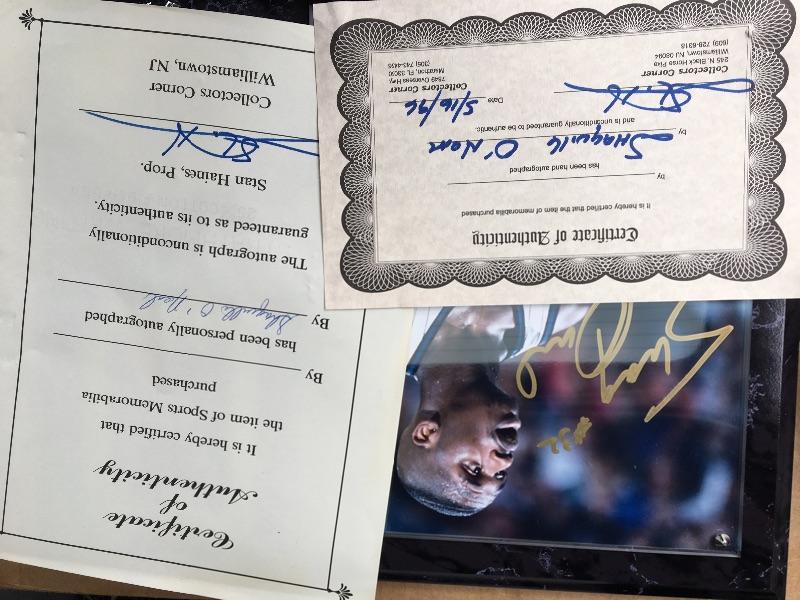 Certificate
of
Authenticity
It is hereby certified that
the item of Sports Memorabilia
purchased
By
has been personally autographed
By Shaquille O'Neal
The autograph is unconditionally
guaranteed as to its authenticity.
Stan Haines, Prop.
Collectors Corner
Williamstown, NJ
Certificate of Authenticity
It is hereby certified that the item of memorabilia purchased
by
has been hand autographed
by Shaquille O'Neal
and is unconditionally guaranteed to be authentic.
5/16/96
Date
Collectors Corner
245 N. Black Horse Pike
Williamstown, NJ 08094
(609) 728-6318
Collectors Corner
7849 Overseas Hwy.
Marathon, FL 33050
(305) 743-4435
#32